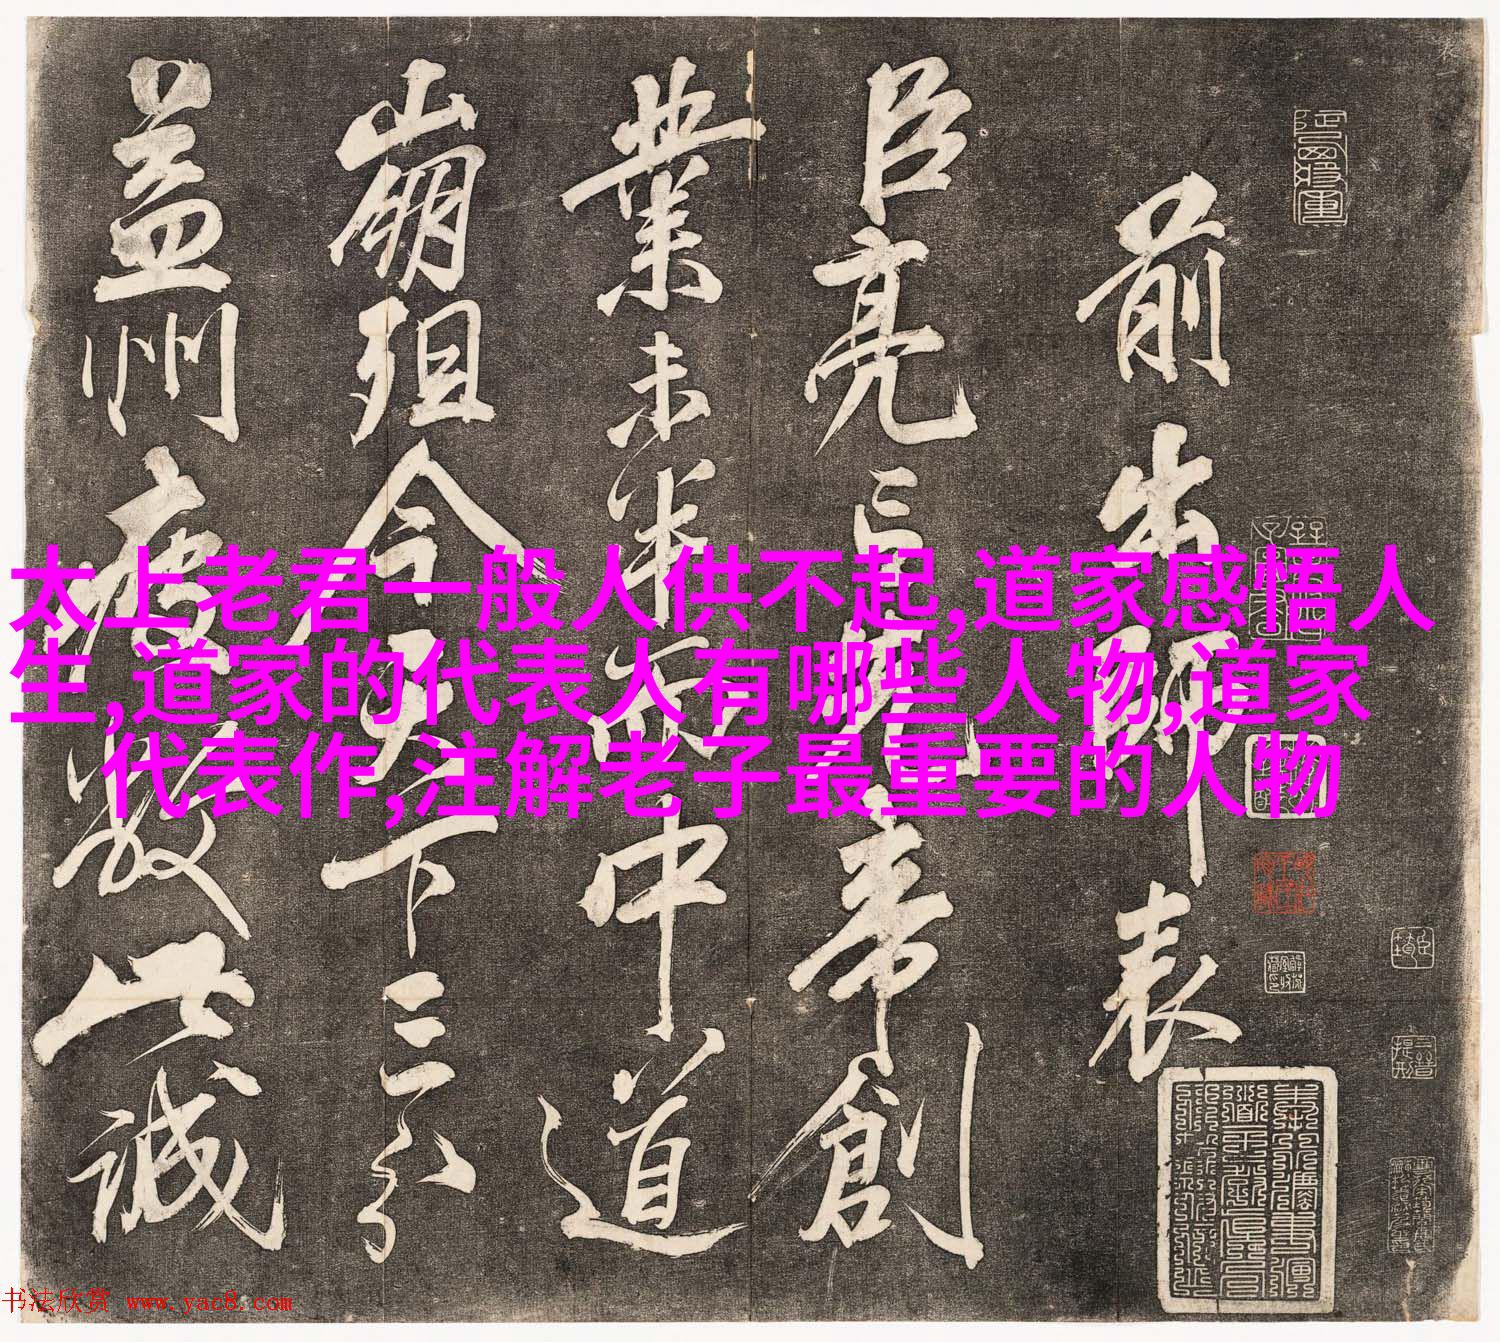 前出師表
臣亮言先帝創
業未半而中道
崩殂今天下三分
益州疲敝此誠
太上老君一般人供不起,道家感悟人
生,道家的代表人有哪些人物,道家
代表作,注解老子最重要的人物
书法欣赏 www.yac8.com